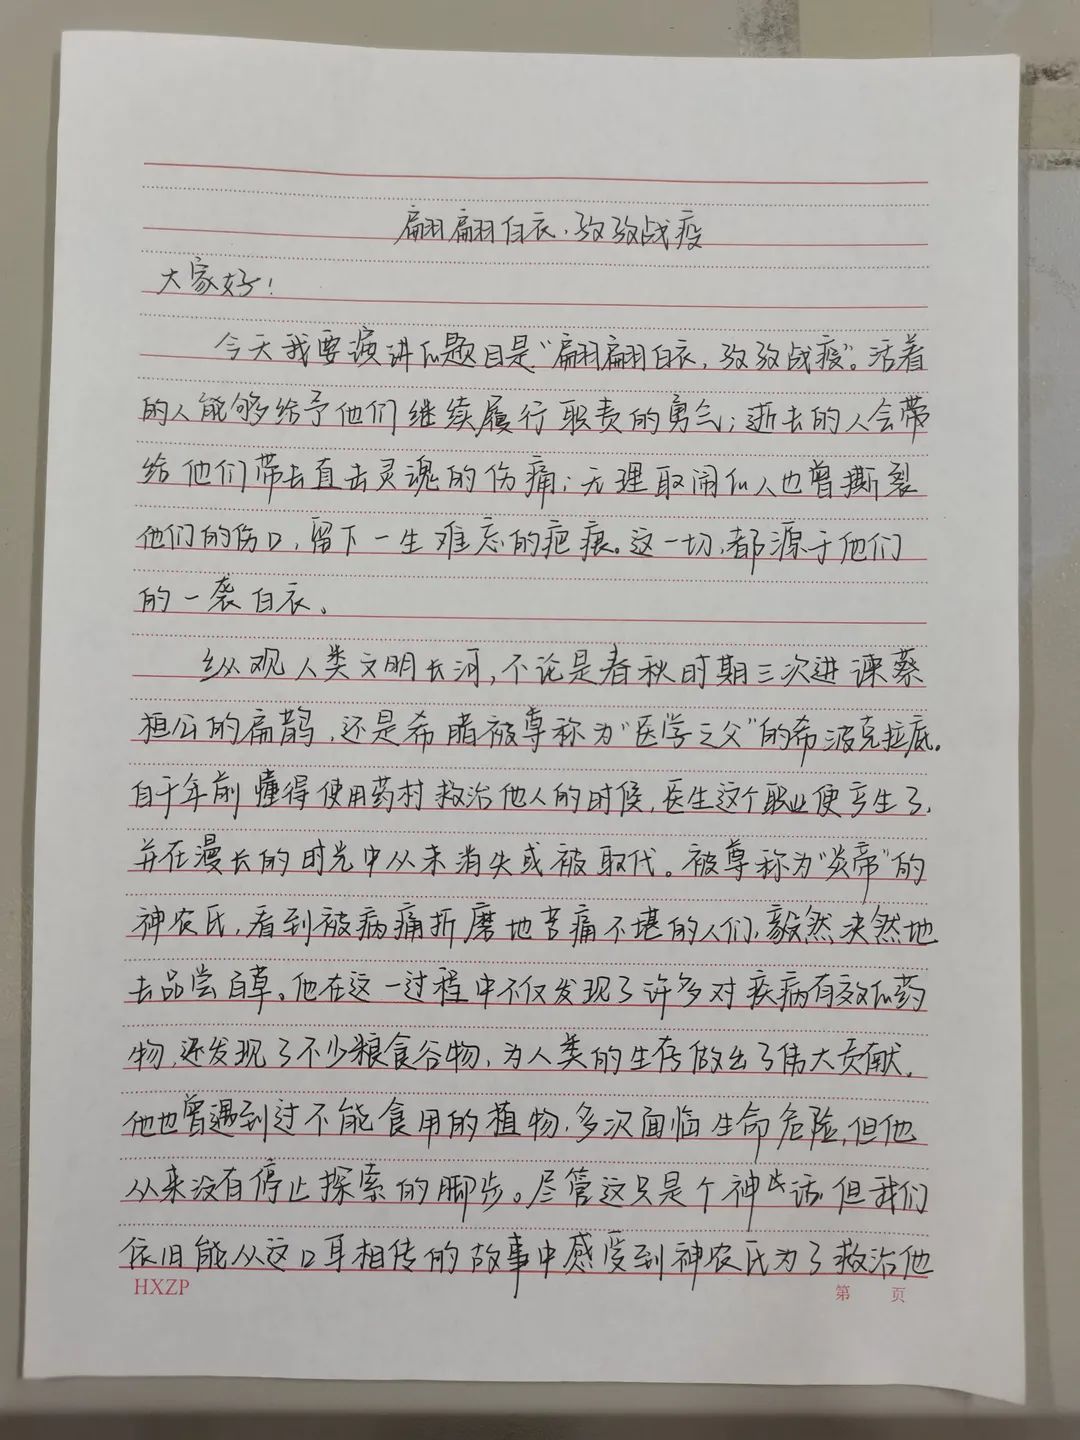 翩翩白衣，孜孜战疫
大家好！
今天我要演讲的题目是“翩翩白衣，孜孜战疫”。活着
的人能够给予他们继续履行职责的勇气；逝去的人会带
给他们带去直击灵魂的伤痛；无理取闹的人也曾撕裂
他们的伤口，留下一生难忘的疤痕。这一切，都源于他们
的一袭白衣。
纵观人类文明长河，不论是春秋时期三次进谏蔡
桓公的扁鹊，还是希腊被尊称为“医学之父”的希波克拉底。
自千年前懂得使用药材救治他人的时候，医生这个职业便产生了，
并在漫长的时光中从未消失或被取代。被尊称为“炎帝”的
神农氏，看到被病痛折磨地苦痛不堪的人们，毅然决然地
去品尝百草。他在这一过程中不仅发现了许多对疾病有效的药
物，还发现了不少粮食谷物，为人类的生存做出了伟大贡献。
他也曾遇到过不能食用的植物，多次面临生命危险，但他
从来没有停止探索的脚步。尽管这只是个神话，但我们
依旧能从这口耳相传的故事中感受到神农氏为了救治他
HXZP
第 页